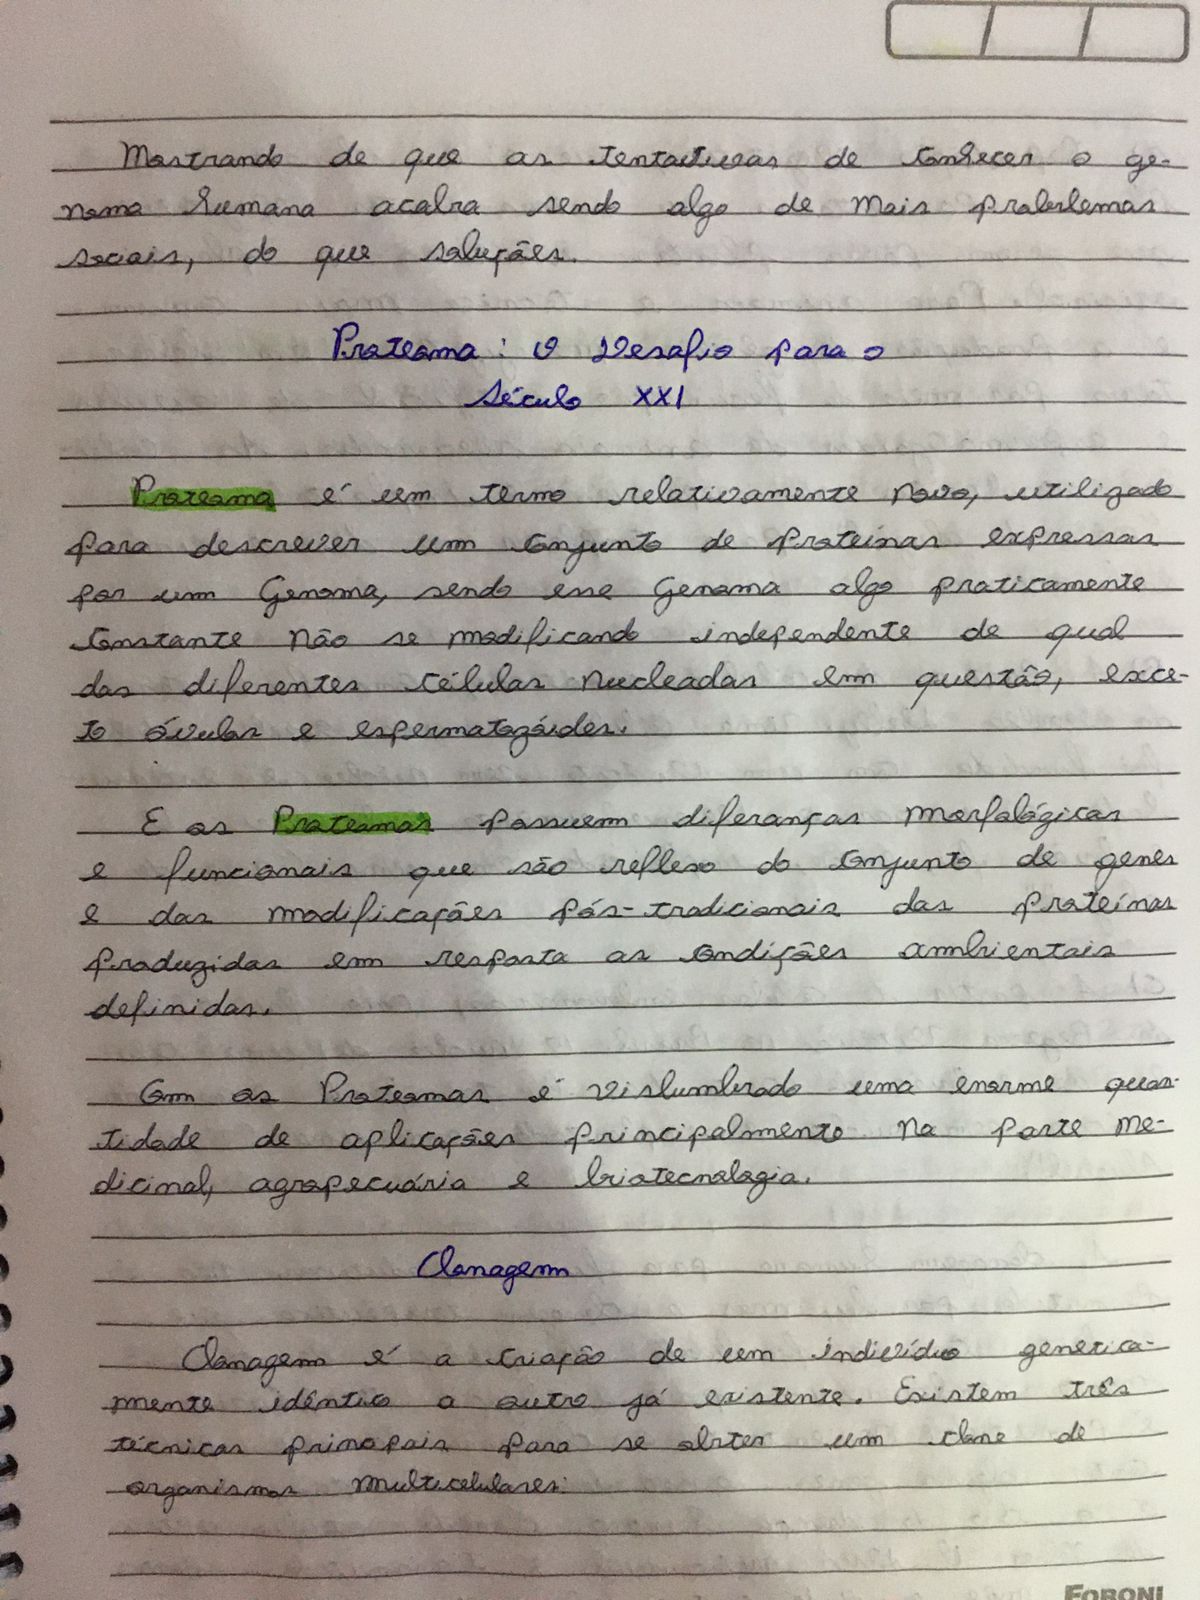 Mostrando de que as tentativas de conhecer o ge-
noma humano acaba sendo algo de mais problemas
sociais, do que soluções.
Proteoma: O Desafio para o
Século XXI
Proteoma é um termo relativamente novo, utilizado
para descrever um conjunto de proteínas expressas
por um Genoma, sendo esse Genoma algo praticamente
constante não se modificando independente de qual
das diferentes células nucleadas em questão, exce-
to óvulos e espermatozóides.
E os Proteomas possuem diferanças morfológicas
e funcionais que são reflexo do conjunto de genes
e das modificações pós-tradicionais das proteínas
produzidas em resposta as condições ambientais
definidas.
Com os Proteomas é vislumbrado uma enorme quan-
tidade de aplicações principalmento na parte me-
dicinal, agropecuária e biotecnologia.
Clonagem
Clonagem é a criação de um indivíduo generica-
mente idêntico a outro já existente. Existem três
técnicas principais para se obter um clone de
organismos multicelulares:
FORONI